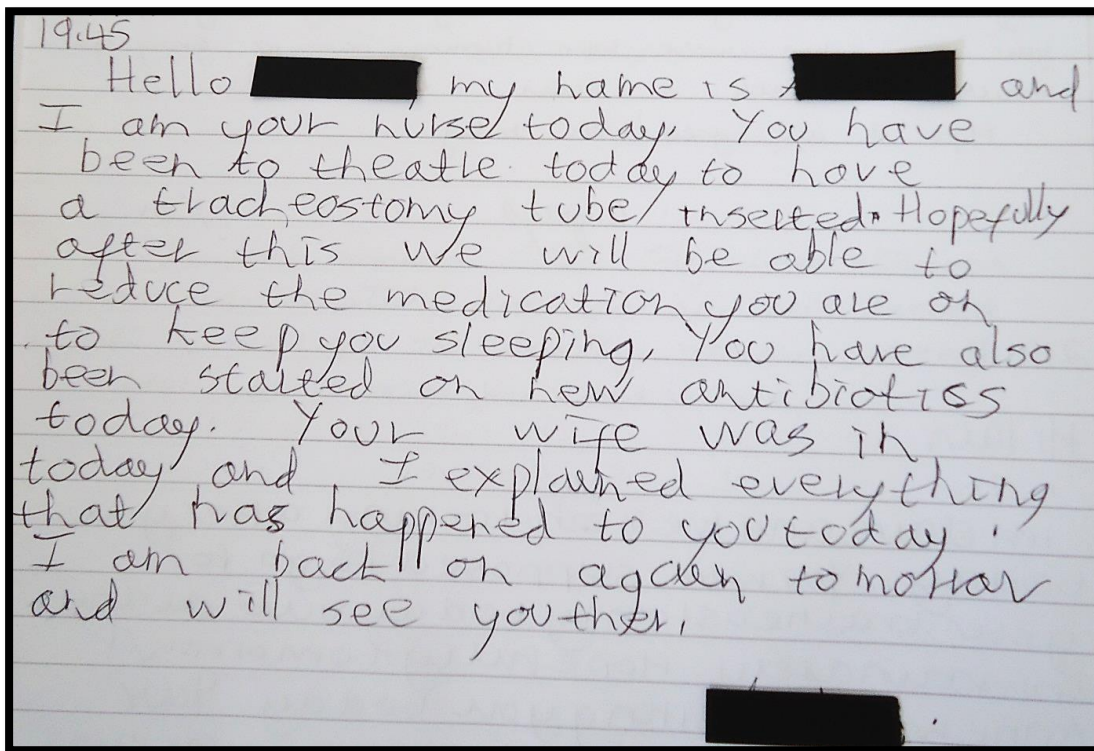 19.45
Hello my name is and
I am your nurse today. You have
been to theatre today to have
a tracheostomy tube inserted. Hopefully
after this we will be able to
reduce the medication you are on
to keep you sleeping. You have also
been started on new antibiotiss
today. Your wife was in
today and I explained everything
that has happened to you today.
I am back on again tomorrow
and will see you then.